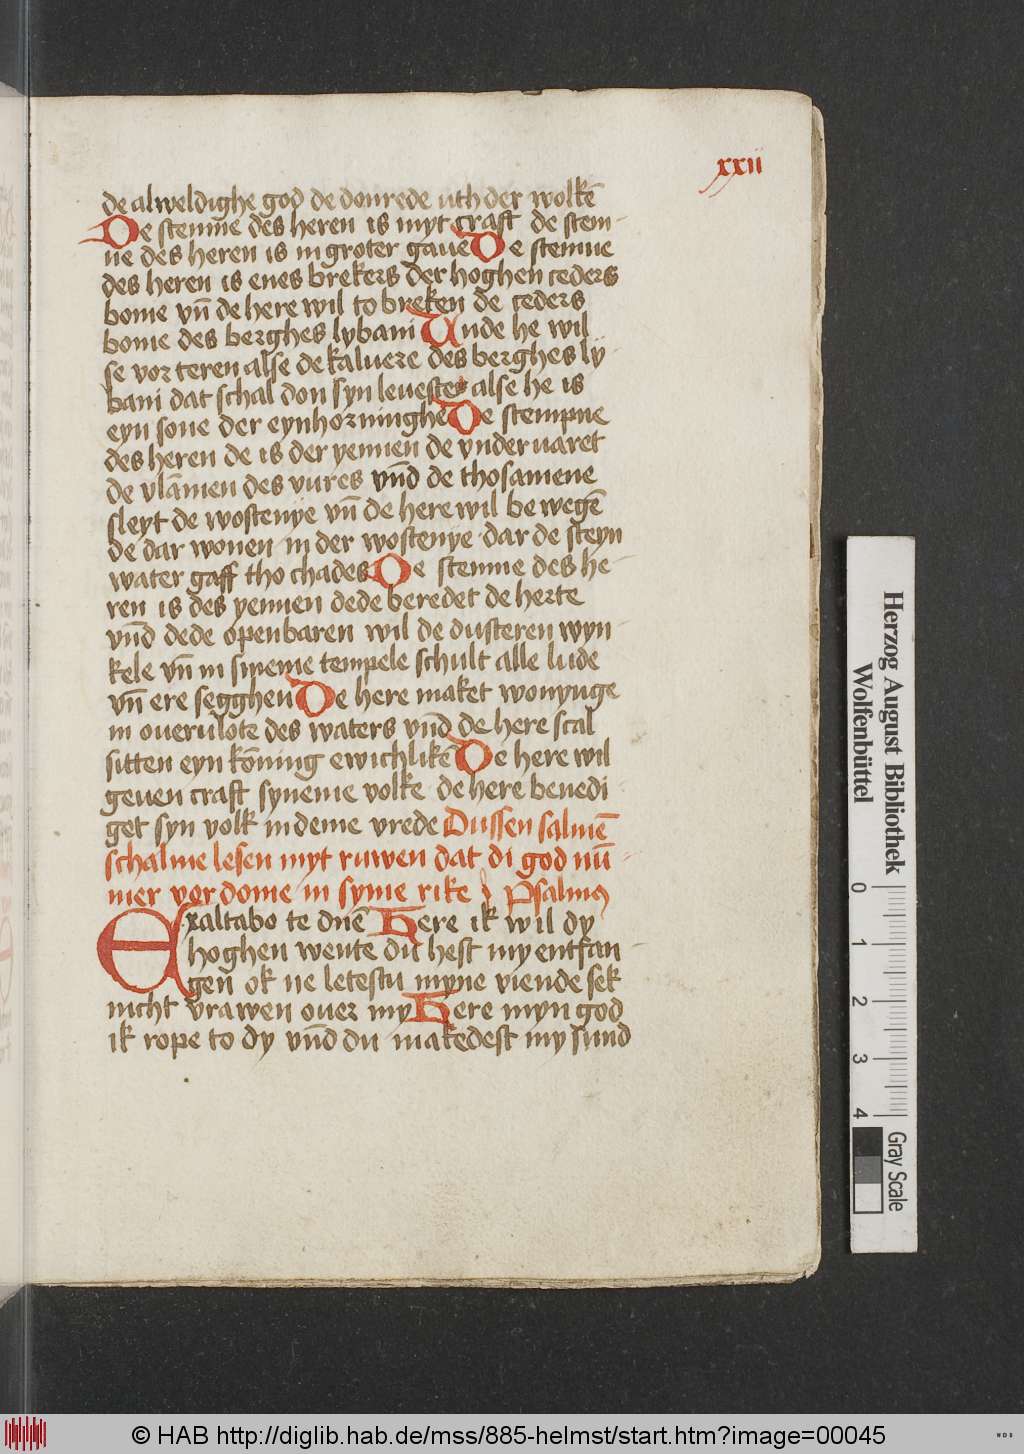 xxii
de alweldighe god de donrede uth der wolkē
De stemme des heren is myt craft de stem-
ne des heren is in groter gaue De stemne
des heren is enes brekers der hoghen ceders
bome vn̄ de here wil to breken de ceders
bome des berghes lybani Unde he wil
se vor teren alse de kaluere des berghes ly-
bani dat schal don syn leueste alse he is
eyn sone der eynhorninghe De stempne
des heren de is der yennen de vnder uaret
de vlāmen des vures vn̄d de thosamene
sleyt de wostenye vn̄ de here wil be wegē
de dar wonen in der wostenye dar de steyn
water gaff tho chades De stemme des he-
ren is des yennen dede beredet de herte
vn̄d dede openbaren wil de dusteren wyn-
kele vn̄ in sineme tempele schult alle lude
vn̄ ere segghen De here maket wonynge
in ouerulote des waters vn̄d de here scal
sitten eyn kōning ewichlikē De here wil
geuen craft syneme volke de here benedi-
get syn volk in deme vrede Dussen salmē
schalme lesen myt ruwen dat di god nū-
mer vor dome in syme rike Psalmus
Exaltabo te dn̄e Here ik wil dy
hoghen wente du hest my entfan-
gen ok ne letestu myne viende sek
nicht vrawen ouer my Here myn god
ik rope to dy vn̄d du makedest my sund
Herzog August Bibliothek
Wolfenbüttel
0 1 2 3 4
Gray Scale
© HAB http://diglib.hab.de/mss/885-helmst/start.htm?image=00045